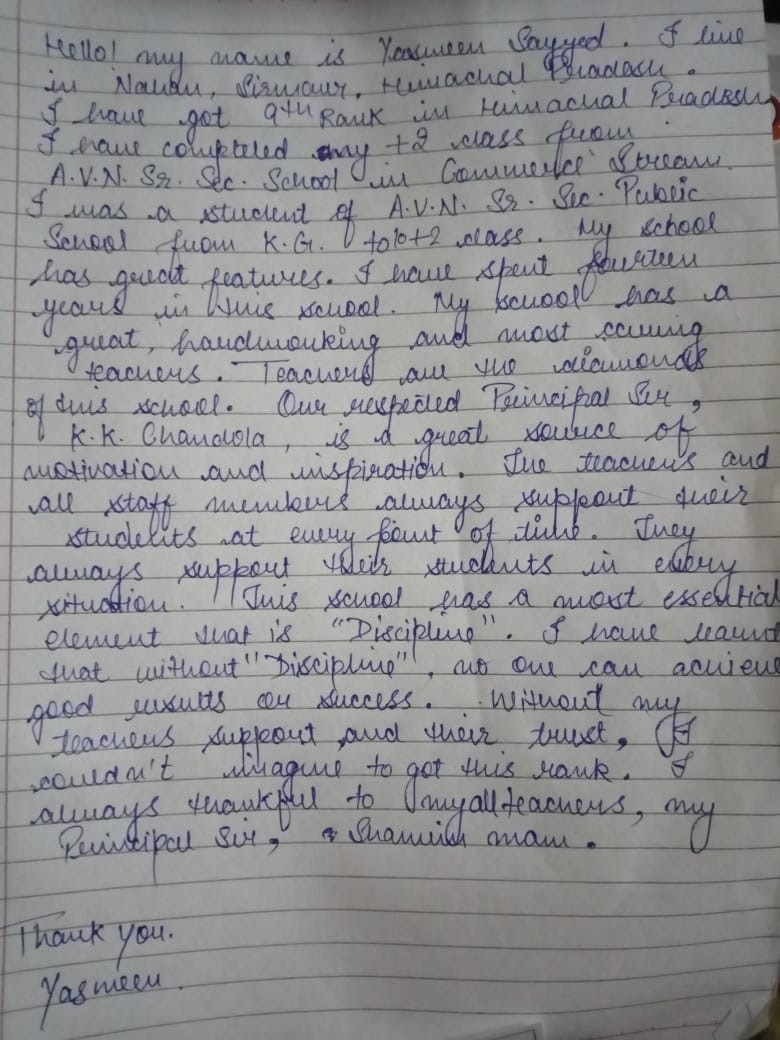 Hello! my name is Yeasmeen Sayyed. I live
in Nahan, Sirmaur, Himachal Pradesh.
I have got 9th Rank in Himachal Pradesh
I have completed my +2 class from
A.V.N. Sr. Sec. School in Commerce Stream.
I was a student of A.V.N. Sr. Sec. Public
School from K.G. to 10+2 class. My school
has great features. I have spent fourteen
years in this school. My school has a
great, hardworking and most caring
teachers. Teachers are the diamonds
of this school. Our respected Principal Sir,
K.K. Chandola, is a great source of
motivation and inspiration. The teachers and
all staff members always support their
students at every point of time. They
always support their students in every
situation. This school has a most essential
element that is "Discipline". I have learnt
that without "Discipline", no one can achieve
good results or success. Without my
teachers support and their trust, I
couldn't imagine to got this rank. I
always thankful to my all teachers, my
Principal Sir, mam.
Thank you.
Yasmeen.